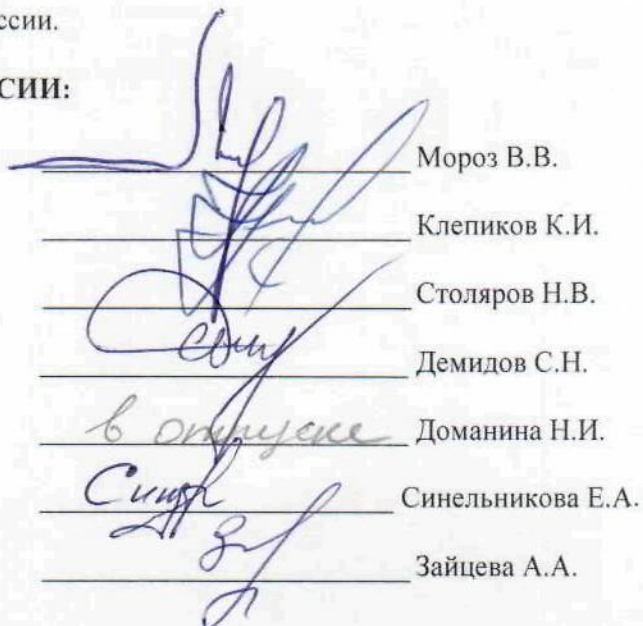 ссии.
СИИ:
Мороз В.В.
Клепиков К.И.
Столяров Н.В.
Демидов С.Н.
в отпуске Доманина Н.И.
Синельникова Е.А.
Зайцева А.А.